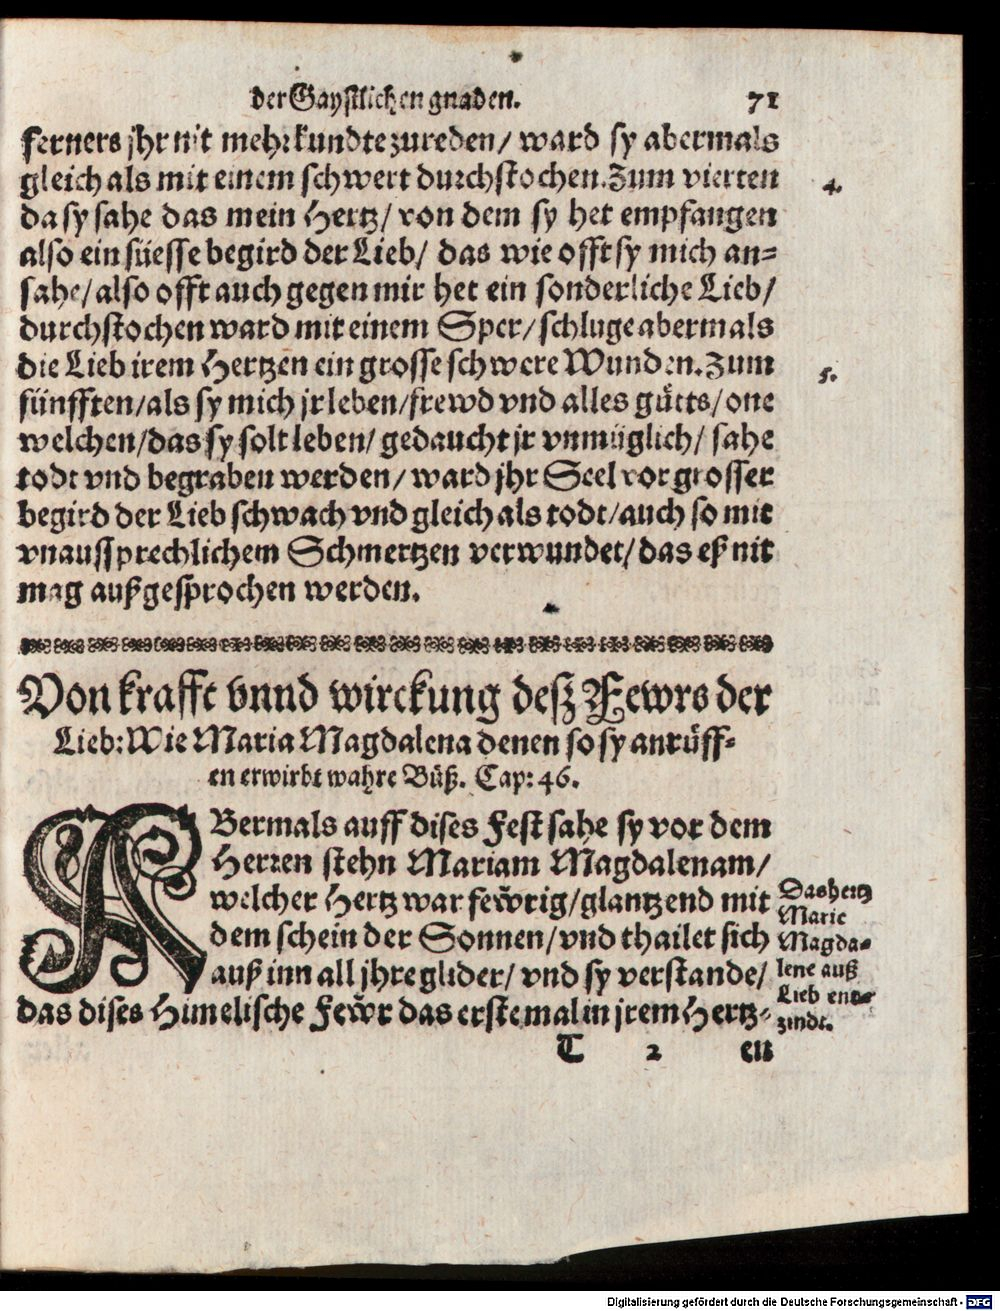 der Gaystlichen gnaden. 71
ferners jhr nit mehr kundte zureden/ ward sy abermals
gleich als mit einem schwert durchstochen. Zum vierten
da sy sahe das mein Hertz/ von dem sy het empfangen
also ein süesse begird der Lieb/ das wie offt sy mich an=
sahe/ also offt auch gegen mir het ein sonderliche Lieb/
durchstochen ward mit einem Sper/ schluge abermals
die Lieb irem Hertzen ein grosse schwere Wunden. Zum
fünfften/ als sy mich jr leben/ frewd vnd alles gůtts/ one
welchen/ das sy solt leben/ gedaucht jr vnmüglich/ sahe
todt vnd begraben werden/ ward jhr Seel vor grosser
begird der Lieb schwach vnd gleich als todt/ auch so mit
vnaussprechlichem Schmertzen verwundet/ das eß nit
mag außgesprochen werden.
4.
5.
Von krafft vnnd wirckung desz Fewrs der
Lieb: Wie Maria Magdalena denen so sy anrůff=
en erwirbt wahre Bůß. Cap: 46.
ABermals auff dises Fest sahe sy vor dem
Herren stehn Mariam Magdalenam/
welcher Hertz war fewrig/ glantzend mit
dem schein der Sonnen/ vnd thailet sich
auß inn all jhre glider/ vnd sy verstande/
das dises Himelische Fewr das erste mal in jrem Hertz=
Das hertz
Marie
Magda=
lene auß
Lieb ent=
zindt.
T 2 en
Digitalisierung gefördert durch die Deutsche Forschungsgemeinschaft - DFG